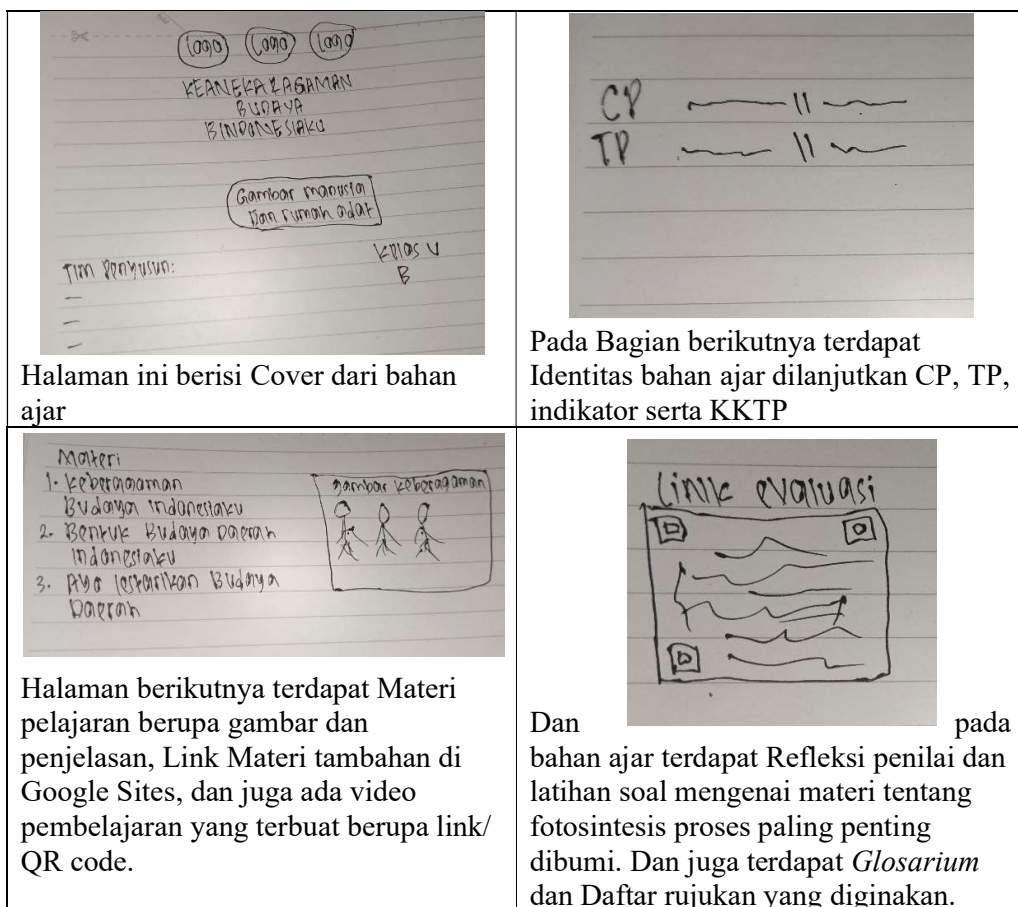 Logo Logo Logo
KEANEKARAGAMAN
BUDAYA
BINDONESIAKU
Gambar manusia
Dan rumah adat
Tim Penyusun:
Kelas V
B
Halaman ini berisi Cover dari bahan
ajar
CP
TP
Pada Bagian berikutnya terdapat
Identitas bahan ajar dilanjutkan CP, TP,
indikator serta KKTP
Materi
1. Keberagaman
Budaya Indonesiaku
2. Bentuk Budaya Daerah
Indonesiaku
3. Ayo lestarikan Budaya
Daerah
gambar keberagaman
Halaman berikutnya terdapat Materi
pelajaran berupa gambar dan
penjelasan, Link Materi tambahan di
Google Sites, dan juga ada video
pembelajaran yang terbuat berupa link/
QR code.
Link evaluasi
Dan pada
bahan ajar terdapat Refleksi penilai dan
latihan soal mengenai materi tentang
fotosintesis proses paling penting
dibumi. Dan juga terdapat Glosarium
dan Daftar rujukan yang diginakan.